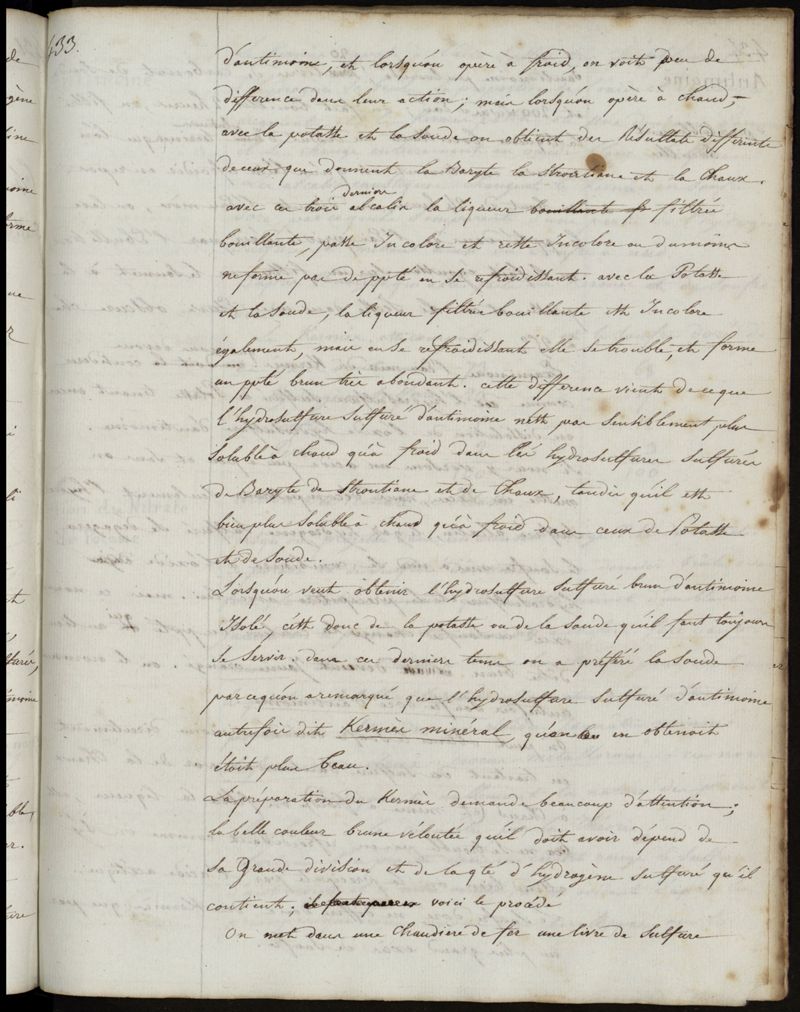 433.
d'antimoine, et lorsqu'on opère à froid, on voit peu de
difference dans leur action; mais lorsqu'on opère à chaud,
avec la potasse et la soude on obtient des Résultats differents
de ceux que donnent la Baryte la Strontiane et la Chaux.
avec ces trois derniers alcalis la liqueur bouillante filtrée
bouillante, passe Incolore et reste Incolore ou du moins
ne forme pas de ppté en se refroidissant. avec la Potasse
et la Soude, la liqueur filtrée bouillante est Incolore
également, mais en se refroidissant elle se trouble, et forme
un ppté brun très abondant. cette difference vient de ce que
l'hydrosulfure sulfuré d'antimoine n'est pas sensiblement plus
soluble à chaud qu'à froid dans les hydrosulfures sulfurés
de Baryte de Strontiane et de Chaux, tandis qu'il est
bien plus soluble à chaud qu'à froid dans ceux de Potasse
et de Soude.
Lorsqu'on veut obtenir l'hydrosulfure sulfuré brun d'antimoine
Isolé, c'est donc de la potasse ou de la Soude qu'il faut toujours
se servir. dans ces derniers tems on a préféré la Soude
parcequ'on a remarqué que l'hydrosulfure sulfuré d'antimoine
autrefois dit Kermès minéral, qu'on en obtenoit
étoit plus beau.
La préparation du Kermès demande beaucoup d'attention;
la belle couleur brune véloutée qu'il doit avoir dépend de
sa Grande division et de la qté d'hydrogène sulfuré qu'il
contient; voici le procédé
On met dans une Chaudiere de fer une livre de sulfure